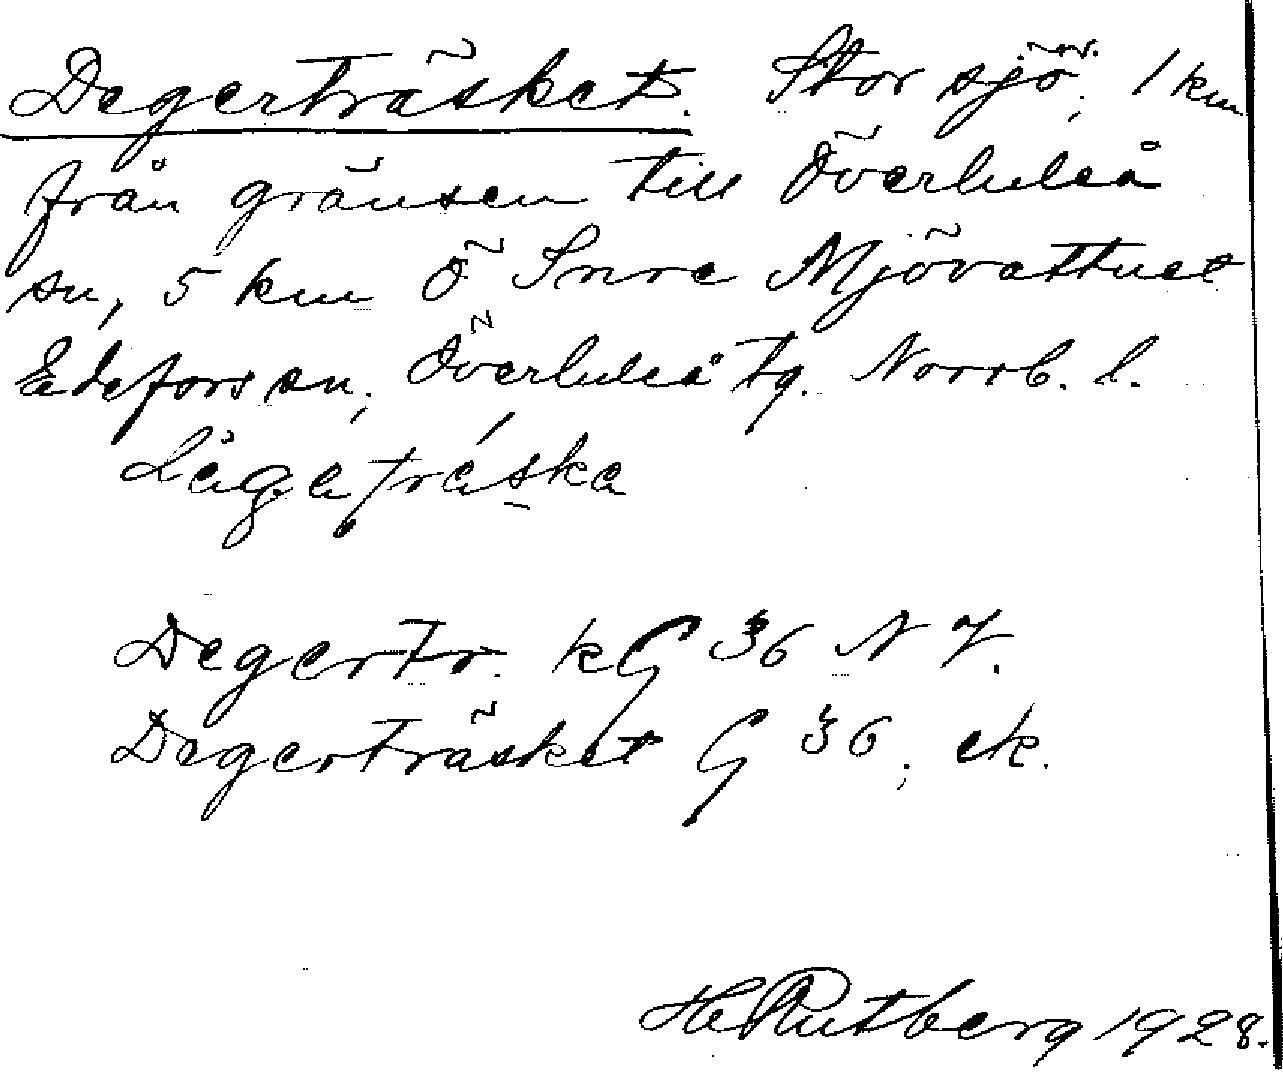 Degerträsket. Stor sjö, 1 km
från gränsen till Överluleå
sn, 5 km Ö Inre Mjövattnet
Edefors sn, Överluleå tg. Norrb. l.
Degertr. kG 36 N V.
Degerträsket G 36, ek.
H Rutberg 1928.